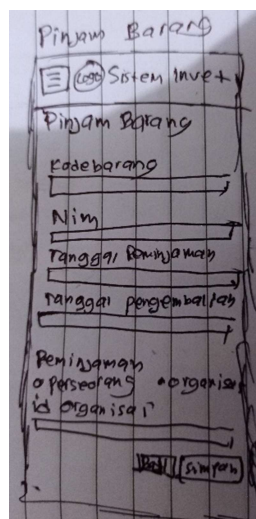 Pinjam Barang
Logo Sistem Invet
Pinjam Barang
Kodebarang
Nim
Tanggal Peminjaman
Tanggal pengembalian
Peminjaman
o perseorang • organisasi
id organisasi
simpan